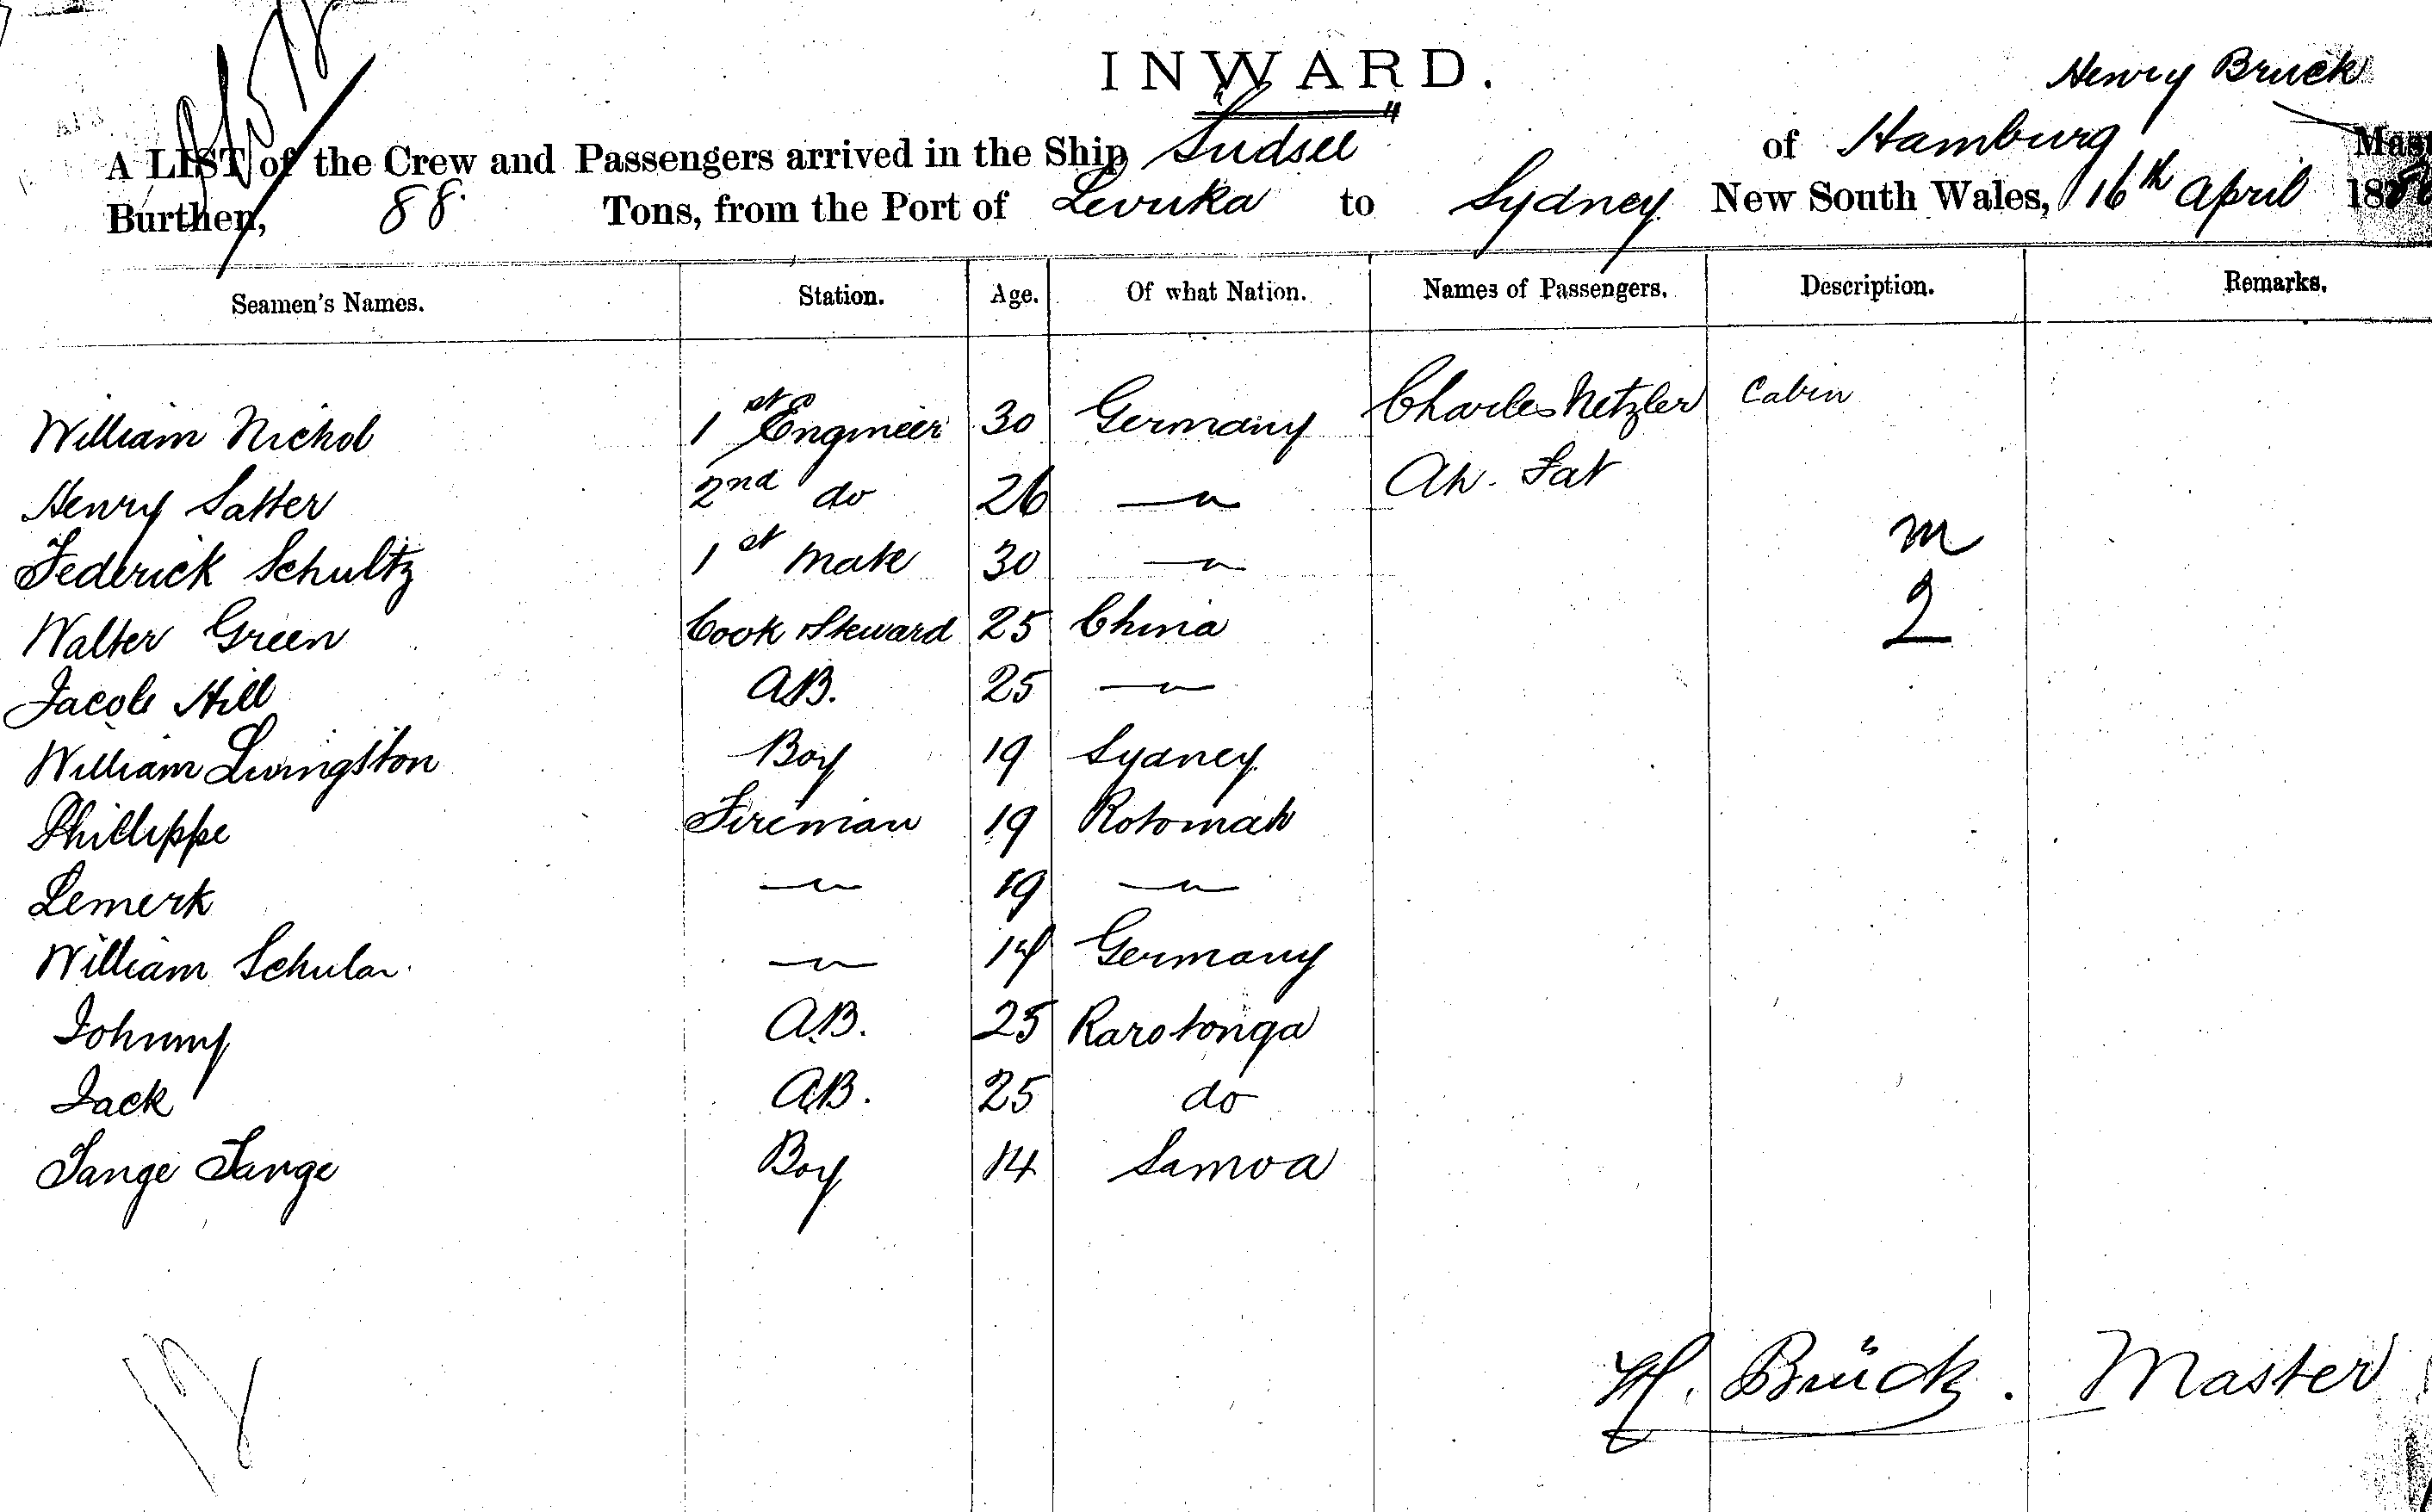 INWARD.
Henry Bruck
A LIST of the Crew and Passengers arrived in the Ship "Sudsee" of Hamburg
Burthen, 88. Tons, from the Port of Levuka to Sydney New South Wales, 16th April
Seamen's Names. Station. Age. Of what Nation. Names of Passengers. Description. Remarks.
William Nichol 1st Engineer 30 Germany Charles Netzler Cabin
Henry Satter 2nd do 26 —"— Ah. Fat
Federick Schultz 1st Mate 30 —"— m
Walter Green Cook Steward 25 China 2
Jacob Hill AB. 25 —"—
William Livingston Boy 19 Sydney
Phillippe Fireman 19 Rotomah
Lemerk —"— 19 —"—
William Schular —"— 14 Germany
Johnny AB. 25 Rarotonga
Jack AB. 25 do
Tange Tange Boy 14 Samoa
12
H. Brück. Master